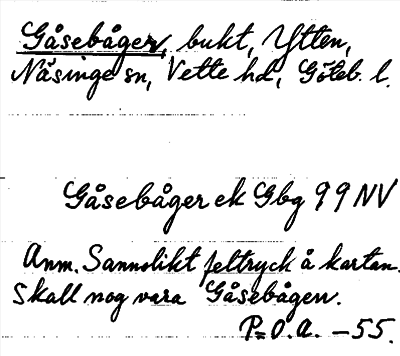 Gåsebåger, bukt, Ytten,
Näsinge sn, Vette hd, Göteb. l.
Gåsebåger ek Gbg 99 NV
Anm. Sannolikt feltryck å kartan.
Skall nog vara Gåsebågen.
P=O.A. -55.